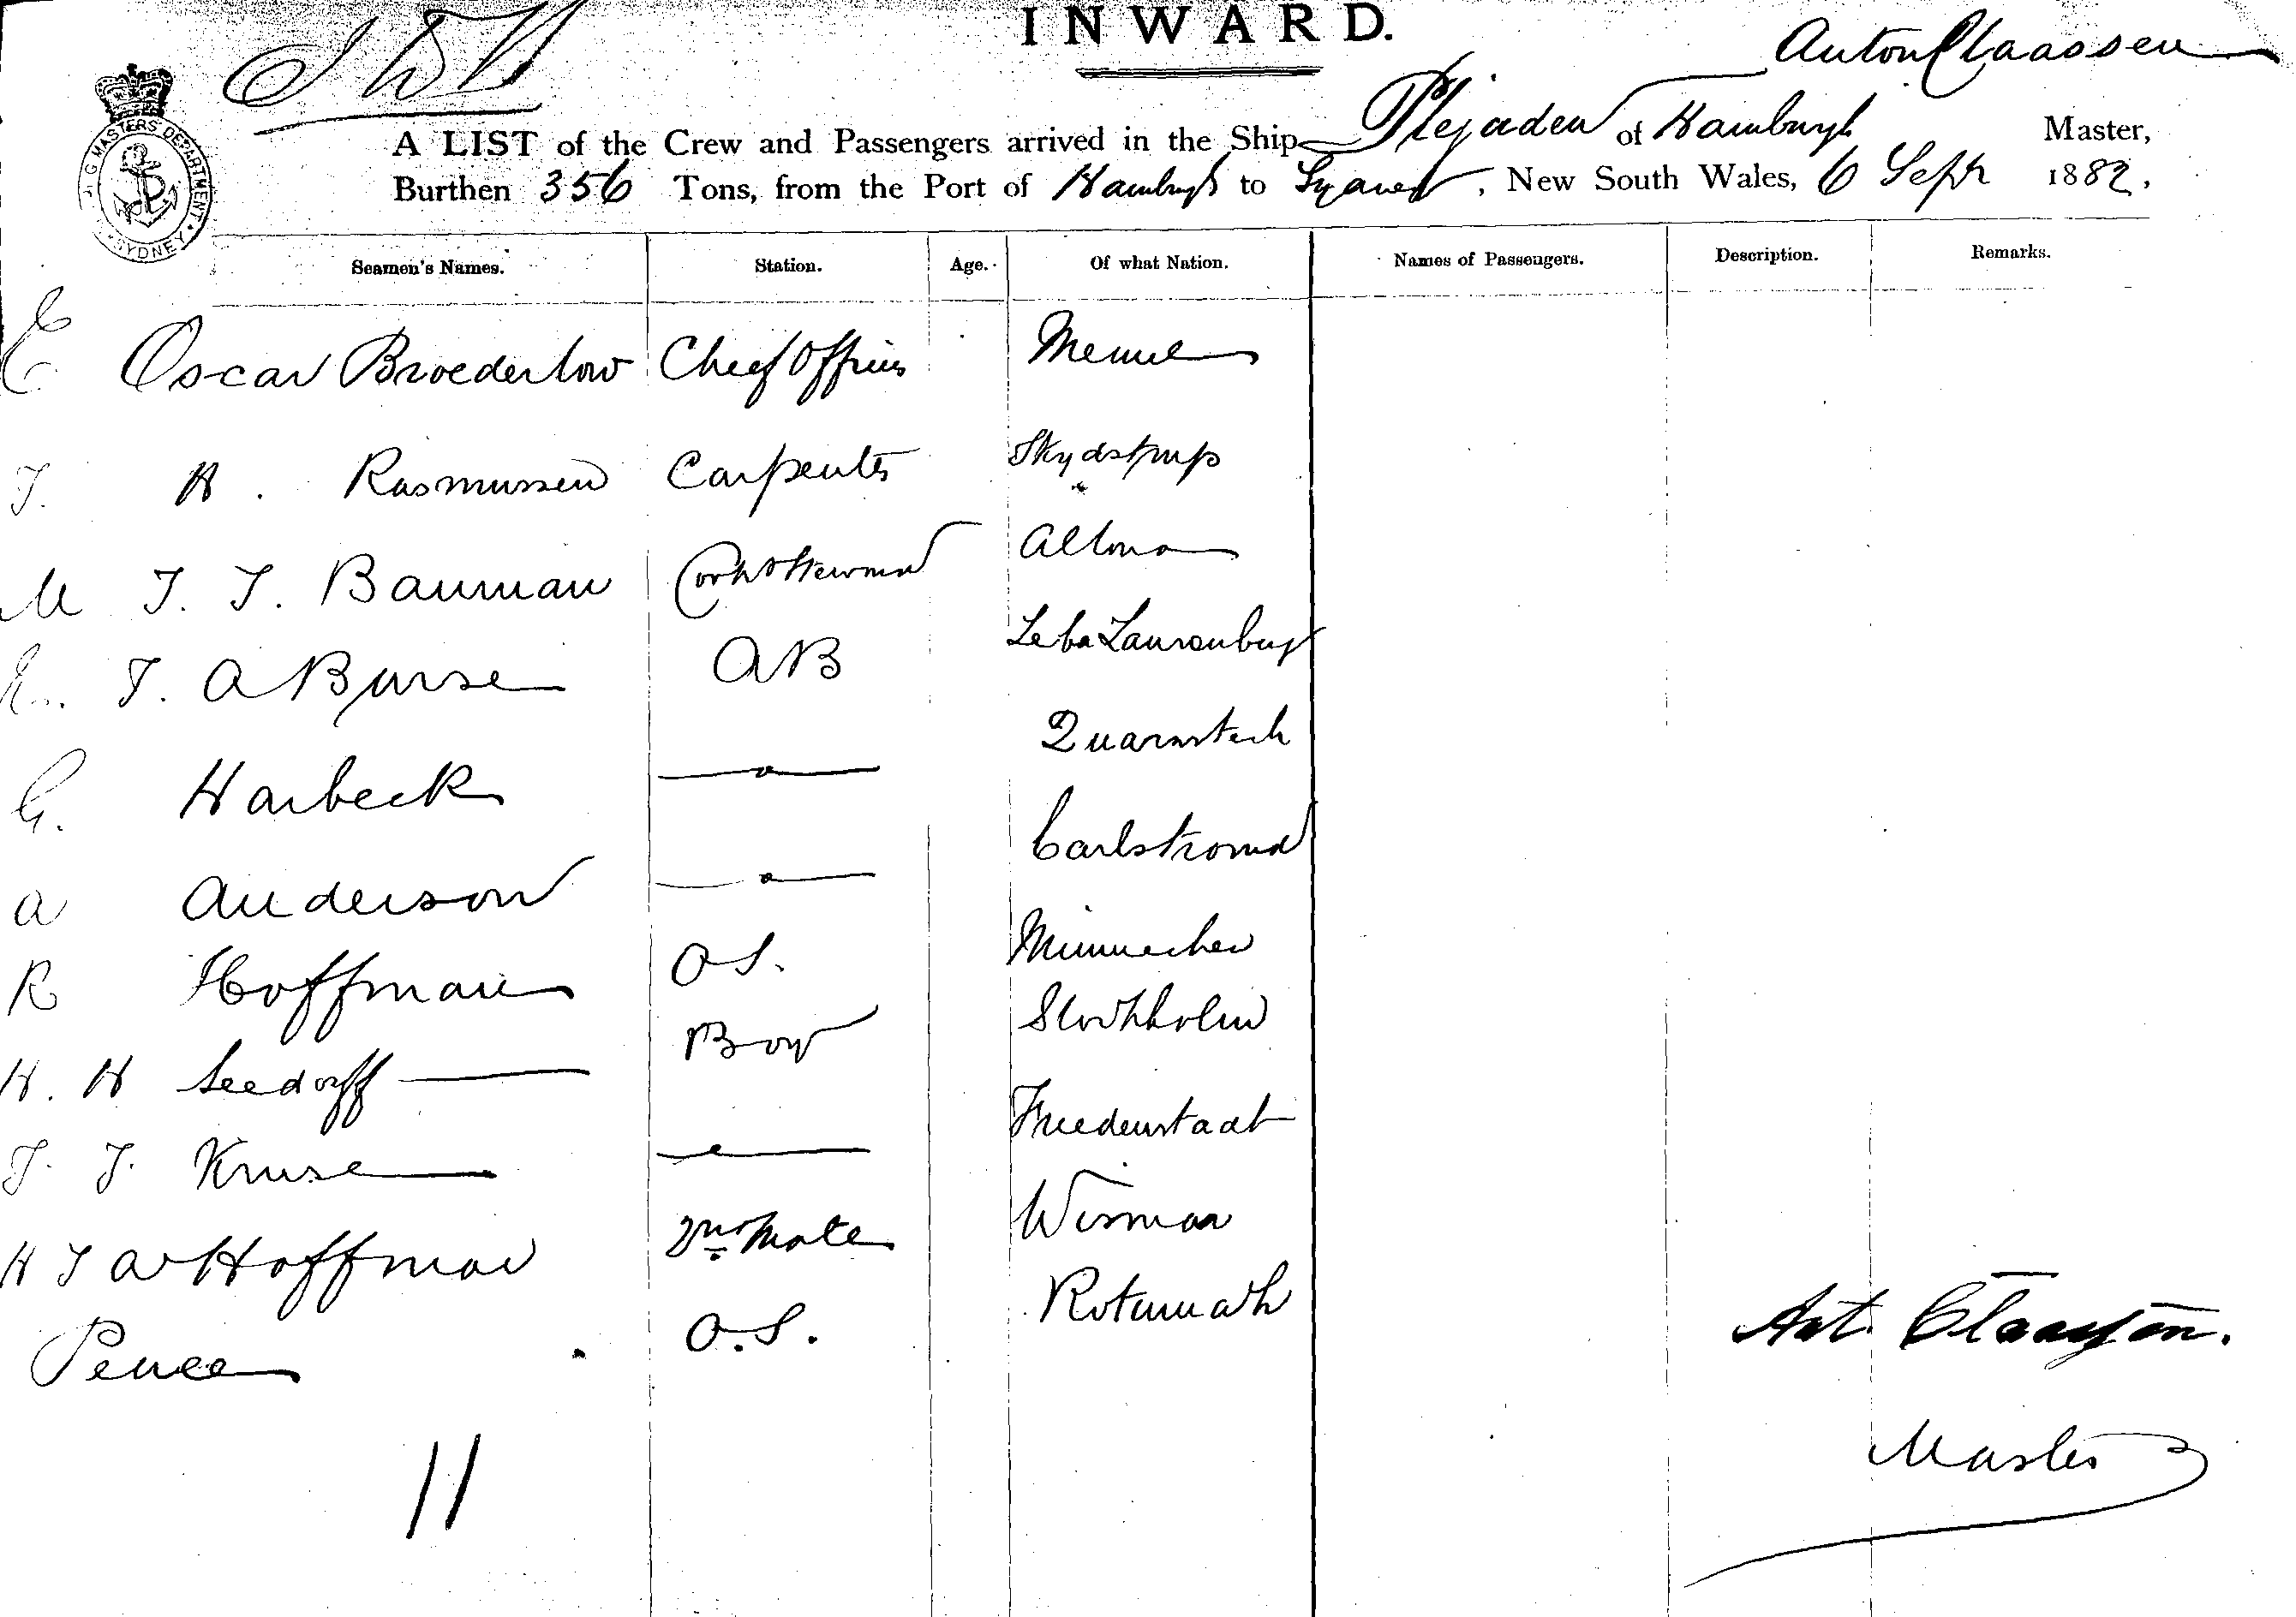 INWARD.
Anton Claassen
A LIST of the Crew and Passengers arrived in the Ship Plejaden of Hamburgh Master,
Burthen 356 Tons, from the Port of Hamburgh to Sydney, New South Wales, 6 Sepr 1882.
S. G. MASTERS DEPARTMENT SYDNEY
Seamen's Names. Station. Age. Of what Nation. Names of Passengers. Description. Remarks.
E Oscar Broederlow Chief Officer Memel
J. H. Rasmussen Carpenter Skydstrup
M J. J. Bauman Cook & Steward Altona
J. A Burse AB Leba Lauenburg
G. Harbeck —"— Quarnstedt
A Anderson —"— Carlstromd
R Hoffman O S. Munnechen
H. H Seedorff Boy Stockholm
J. J. Kruse —"— Freedenstadt
H J W Hoffman 2nd Mate Wismar
Pence O.S.
11
Ant. Claassen.
Master